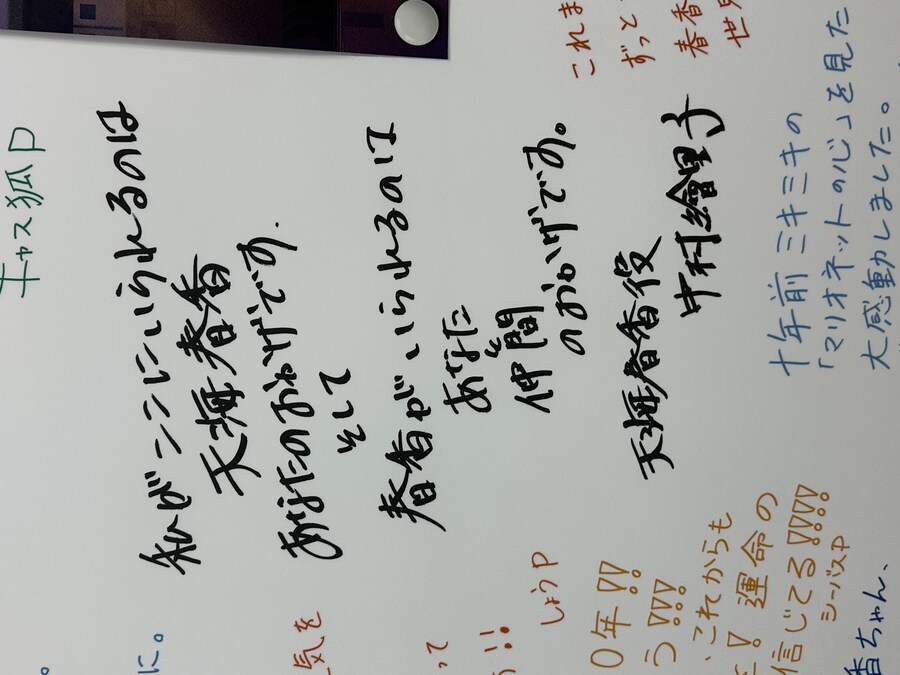 キャス狐P
私がここにいられるのは
天海春香
あなたのおかげです.
そして
春香がここにいられるのは
あなたと
仲間
のおかげです。
天海春香役
中村繪里子
これま
ずっと
春香
世界
十年前ミキミキの
「マリオネットの心」を見た
大感動しました。
気を
って
!!
しょうP
0年!!
う!!!
これからも
! 運命の
信じてる!!!!
シーバスP
香ちゃん、
に。